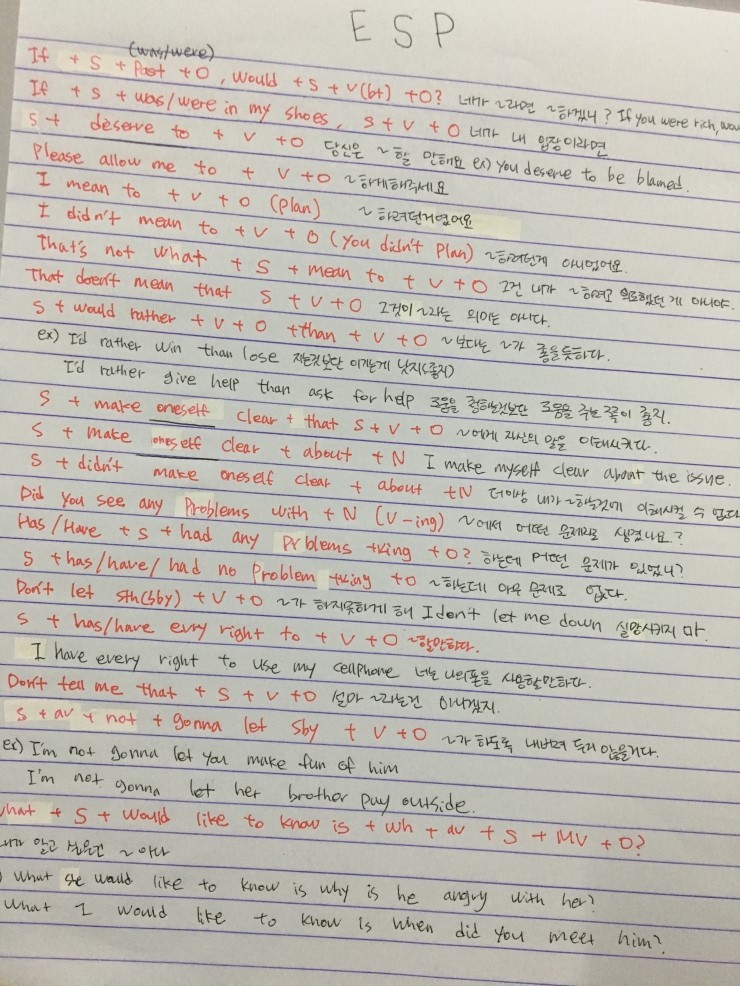 ESP
(was/were)
If + S + Past + O, would + S + V(bt) + O? 네가 ~라면 ~하겠니? If you were rich, wou
If + S + was/were in my shoes, S + V + O 네가 내 입장이라면
S + deserve to + V + O 당신은 ~할 만해요 ex) You deserve to be blamed.
Please allow me to + V + O ~하게해주세요
I mean to + V + O (plan) ~하려던거였어요
I didn't mean to + V + O (you didn't plan) ~하려던게 아니었어요.
That's not what + S + mean to + V + O 그건 내가 ~하려고 의도했던 게 아니야.
That doesn't mean that S + V + O 그것이 ~라는 의미는 아니다.
S + would rather + V + O + than + V + O ~보다는 ~가 좋을듯하다.
ex) I'd rather win than lose 지는것보단 이기는게 낫지(좋지)
I'd rather give help than ask for help 도움을 청하는것보단 도움을 주는 쪽이 좋지.
S + make oneself clear + that S + V + O ~에게 자신의 말을 이해시키다.
S + make oneself clear + about + N I make myself clear about the issue.
S + didn't make oneself clear + about + N 더이상 내가 ~하는것에 이해시킬 수 없다
Did you see any Problems with + N (V-ing) ~에서 어떤 문제라도 생겼나요?
Has/Have + S + had any Problems +ving + O? 하는데 어떤 문제가 있었니?
S + has/have/had no Problem +ving + O ~하는데 아무 문제도 없다.
Don't let sth(sby) + V + O ~가 하지못하게 해 I don't let me down 실망시키지 마.
S + has/have evry right to + V + O ~할만하다.
I have every right to use my cellphone 너는 너의폰을 사용할만하다.
Don't tell me that + S + V + O 설마 ~라는건 아니겠지.
S + av + not + gonna let sby + V + O ~가 하도록 내버려 두지 않을거다.
ex) I'm not gonna let you make fun of him
I'm not gonna let her brother pay outside.
what + S + would like to know is + wh + av + S + MV + O?
내가 알고 싶은건 ~ 이다
What she would like to know is why is he angry with her?
What I would like to know is when did you meet him?